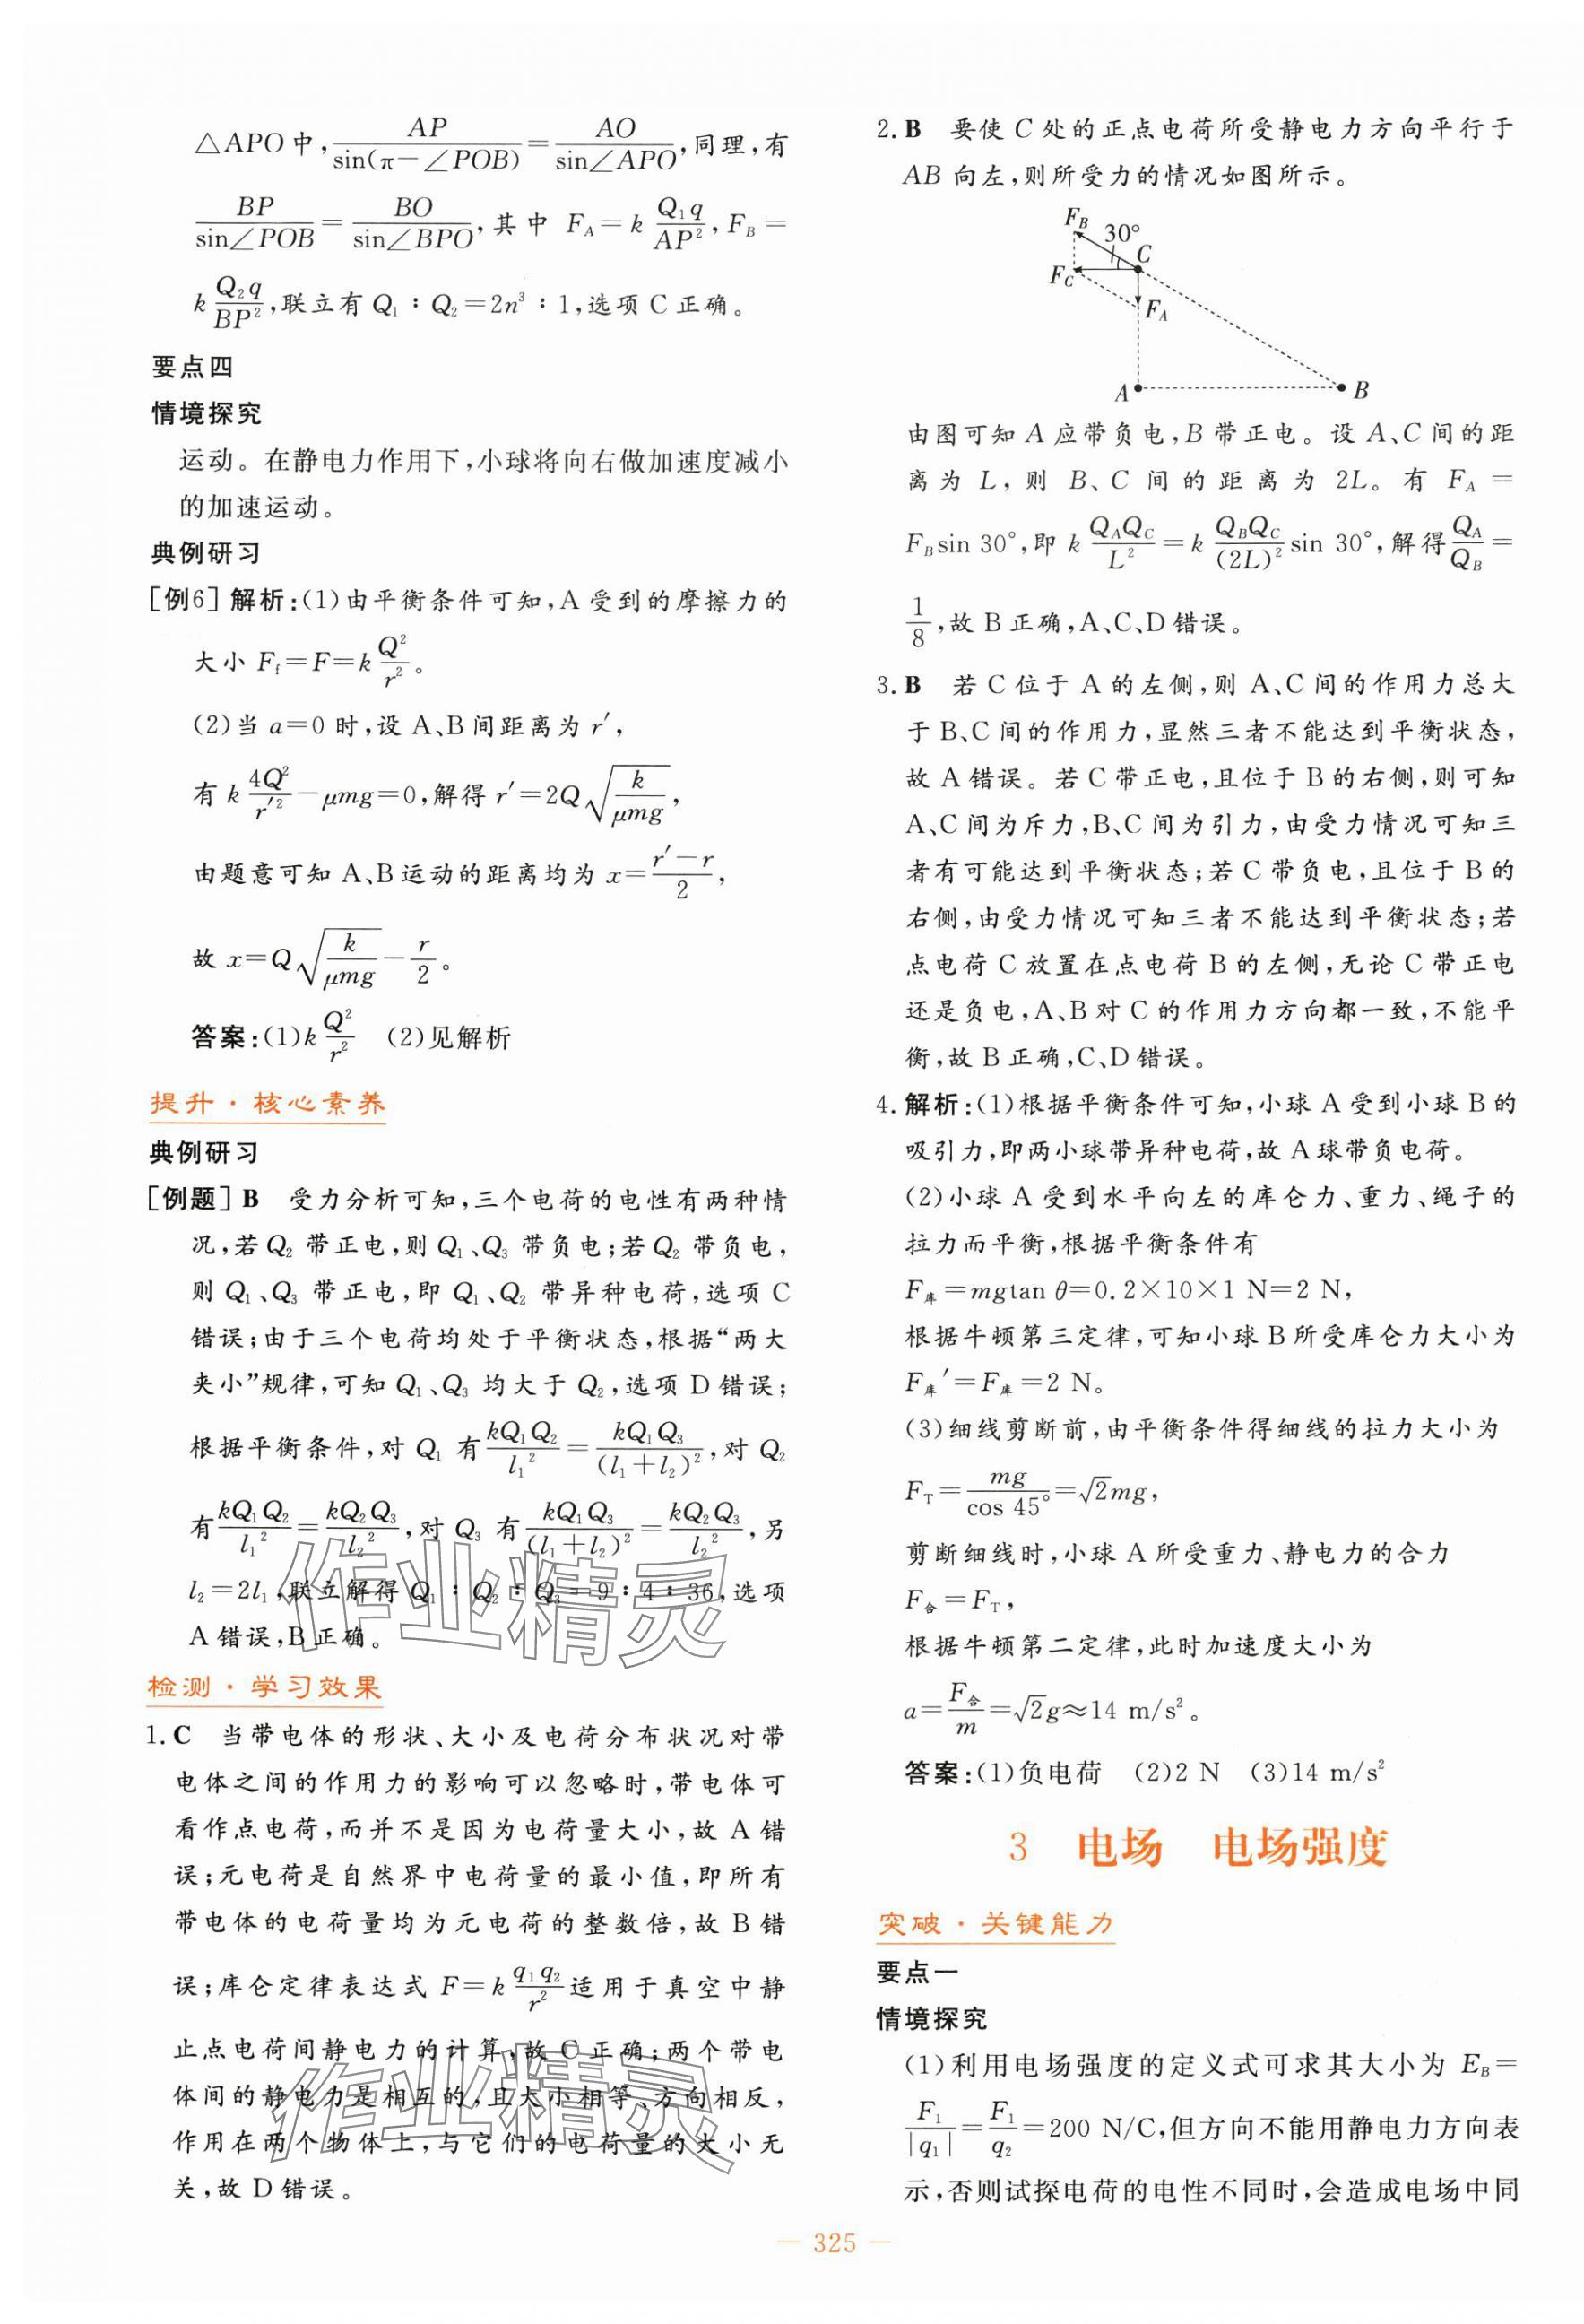 △APO中, AP/sin(π－∠POB)＝AO/sin∠APO,同理,有
BP/sin∠POB＝BO/sin∠BPO,其中 F_A＝k Q₁q/AP², F_B＝
k Q₂q/BP²,联立有 Q₁∶Q₂＝2n³∶1,选项 C 正确。
要点四
情境探究
运动。在静电力作用下,小球将向右做加速度减小
的加速运动。
典例研习
[例6] 解析:(1)由平衡条件可知,A 受到的摩擦力的
大小 F_f＝F＝k Q²/r²。
(2)当 a＝0 时,设 A、B 间距离为 r′,
有 k 4Q²/r′²－μmg＝0,解得 r′＝2Q√(k/μmg),
由题意可知 A、B 运动的距离均为 x＝(r′－r)/2,
故 x＝Q√(k/μmg)－r/2。
答案:(1)k Q²/r² (2)见解析
提升·核心素养
典例研习
[例题] B 受力分析可知,三个电荷的电性有两种情
况,若 Q₂ 带正电,则 Q₁、Q₃ 带负电;若 Q₂ 带负电,
则 Q₁、Q₃ 带正电,即 Q₁、Q₂ 带异种电荷,选项 C
错误;由于三个电荷均处于平衡状态,根据“两大
夹小”规律,可知 Q₁、Q₃ 均大于 Q₂,选项 D 错误;
根据平衡条件,对 Q₁ 有 kQ₁Q₂/l₁²＝kQ₁Q₃/(l₁＋l₂)²,对 Q₂
有 kQ₁Q₂/l₁²＝kQ₂Q₃/l₂²,对 Q₃ 有 kQ₁Q₃/(l₁＋l₂)²＝kQ₂Q₃/l₂²,另
l₂＝2l₁,联立解得 Q₁∶Q₂∶Q₃＝9∶4∶36,选项
A 错误,B 正确。
作业精灵
检测·学习效果
1. C 当带电体的形状、大小及电荷分布状况对带
电体之间的作用力的影响可以忽略时,带电体可
看作点电荷,而并不是因为电荷量大小,故 A 错
误;元电荷是自然界中电荷量的最小值,即所有
带电体的电荷量均为元电荷的整数倍,故 B 错
误;库仑定律表达式 F＝k q₁q₂/r² 适用于真空中静
止点电荷间静电力的计算,故 C 正确;两个带电
体间的静电力是相互的,且大小相等、方向相反,
作用在两个物体上,与它们的电荷量的大小无
关,故 D 错误。
作业精灵
2. B 要使 C 处的正点电荷所受静电力方向平行于
AB 向左,则所受力的情况如图所示。
F_B
30°
C
F_C
F_A
A
B
由图可知 A 应带负电,B 带正电。设 A、C 间的距
离为 L,则 B、C 间的距离为 2L。有 F_A＝
F_B sin 30°,即 k Q_AQ_C/L²＝k Q_BQ_C/(2L)² sin 30°,解得 Q_A/Q_B＝
1/8,故 B 正确,A、C、D 错误。
3. B 若 C 位于 A 的左侧,则 A、C 间的作用力总大
于 B、C 间的作用力,显然三者不能达到平衡状态,
故 A 错误。若 C 带正电,且位于 B 的右侧,则可知
A、C 间为斥力,B、C 间为引力,由受力情况可知三
者有可能达到平衡状态;若 C 带负电,且位于 B 的
右侧,由受力情况可知三者不能达到平衡状态;若
点电荷 C 放置在点电荷 B 的左侧,无论 C 带正电
还是负电,A、B 对 C 的作用力方向都一致,不能平
衡,故 B 正确,C、D 错误。
4. 解析:(1)根据平衡条件可知,小球 A 受到小球 B 的
吸引力,即两小球带异种电荷,故 A 球带负电荷。
(2)小球 A 受到水平向左的库仑力、重力、绳子的
拉力而平衡,根据平衡条件有
F库＝mgtan θ＝0.2×10×1 N＝2 N,
根据牛顿第三定律,可知小球 B 所受库仑力大小为
F库′＝F库＝2 N。
(3)细线剪断前,由平衡条件得细线的拉力大小为
F_T＝mg/cos 45°＝√2mg,
剪断细线时,小球 A 所受重力、静电力的合力
F合＝F_T,
根据牛顿第二定律,此时加速度大小为
a＝F合/m＝√2g≈14 m/s²。
答案:(1)负电荷 (2)2 N (3)14 m/s²
3 电场 电场强度
突破·关键能力
要点一
情境探究
(1)利用电场强度的定义式可求其大小为 E_B＝
F₁/|q₁|＝F₁/q₂＝200 N/C,但方向不能用静电力方向表
示,否则试探电荷的电性不同时,会造成电场中同
— 325 —